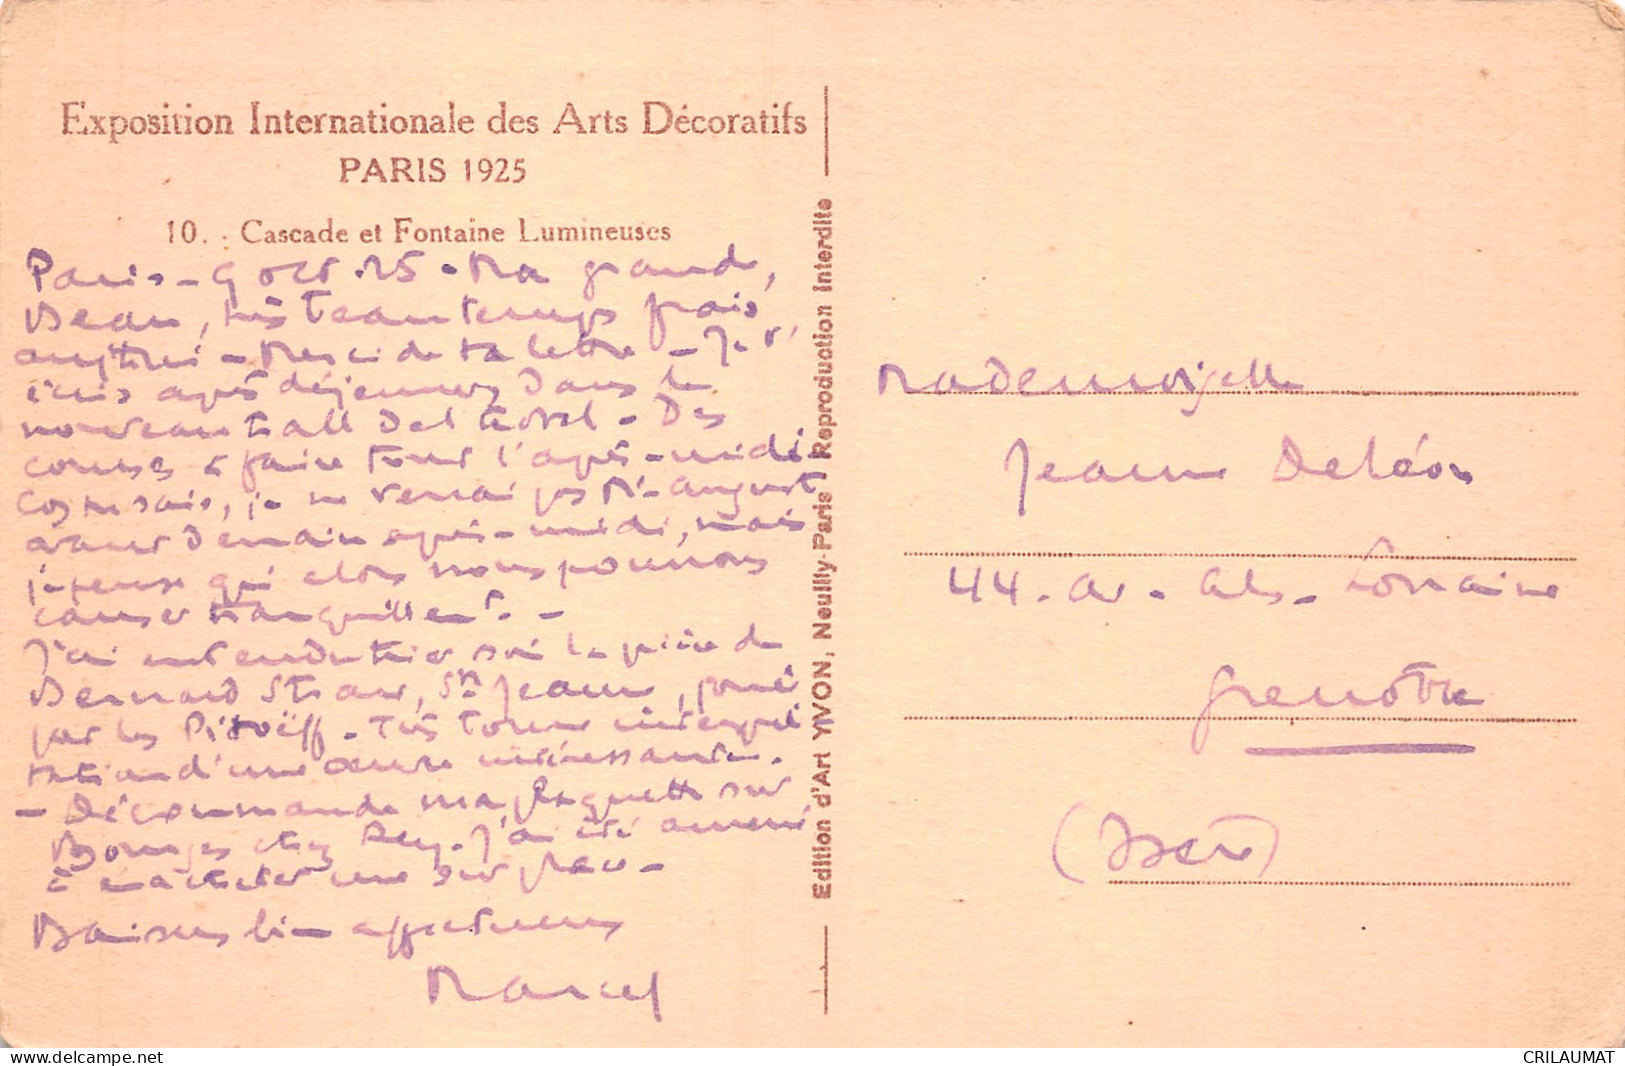 Exposition Internationale des Arts Décoratifs
PARIS 1925
10. - Cascade et Fontaine Lumineuses
Paris - 9 oct. 25 - Ma grande,
Beau, très beau temps frais
aujd'hui - Merci de ta lettre - Je t'
écris après déjeuner dans le
nouveau hall de l'hôtel - Des
courses à faire tout l'après-midi
je ne verrai pas Mr August
avant demain après-midi, mais
je pense qu'alors nous pourrons
causer tranquillemt. -
J'ai entendu hier soir la pièce de
Bernard Shaw, Ste Jeanne, jouée
par les Pitoëff - Très bonne interpré
tation d'une œuvre intéressante.
- Décommande ma plaquette sur
Bourges chez Rey. J'ai été amené
à en acheter une sur place -
Baisers bien affectueux
Marcel
Mademoiselle
Jeanne Deléon
44 - av. Als - Lorraine
Grenoble
(Isère)
Edition d'Art YVON, Neuilly-Paris Reproduction Interdite
delcampe.net
CRILAUMAT